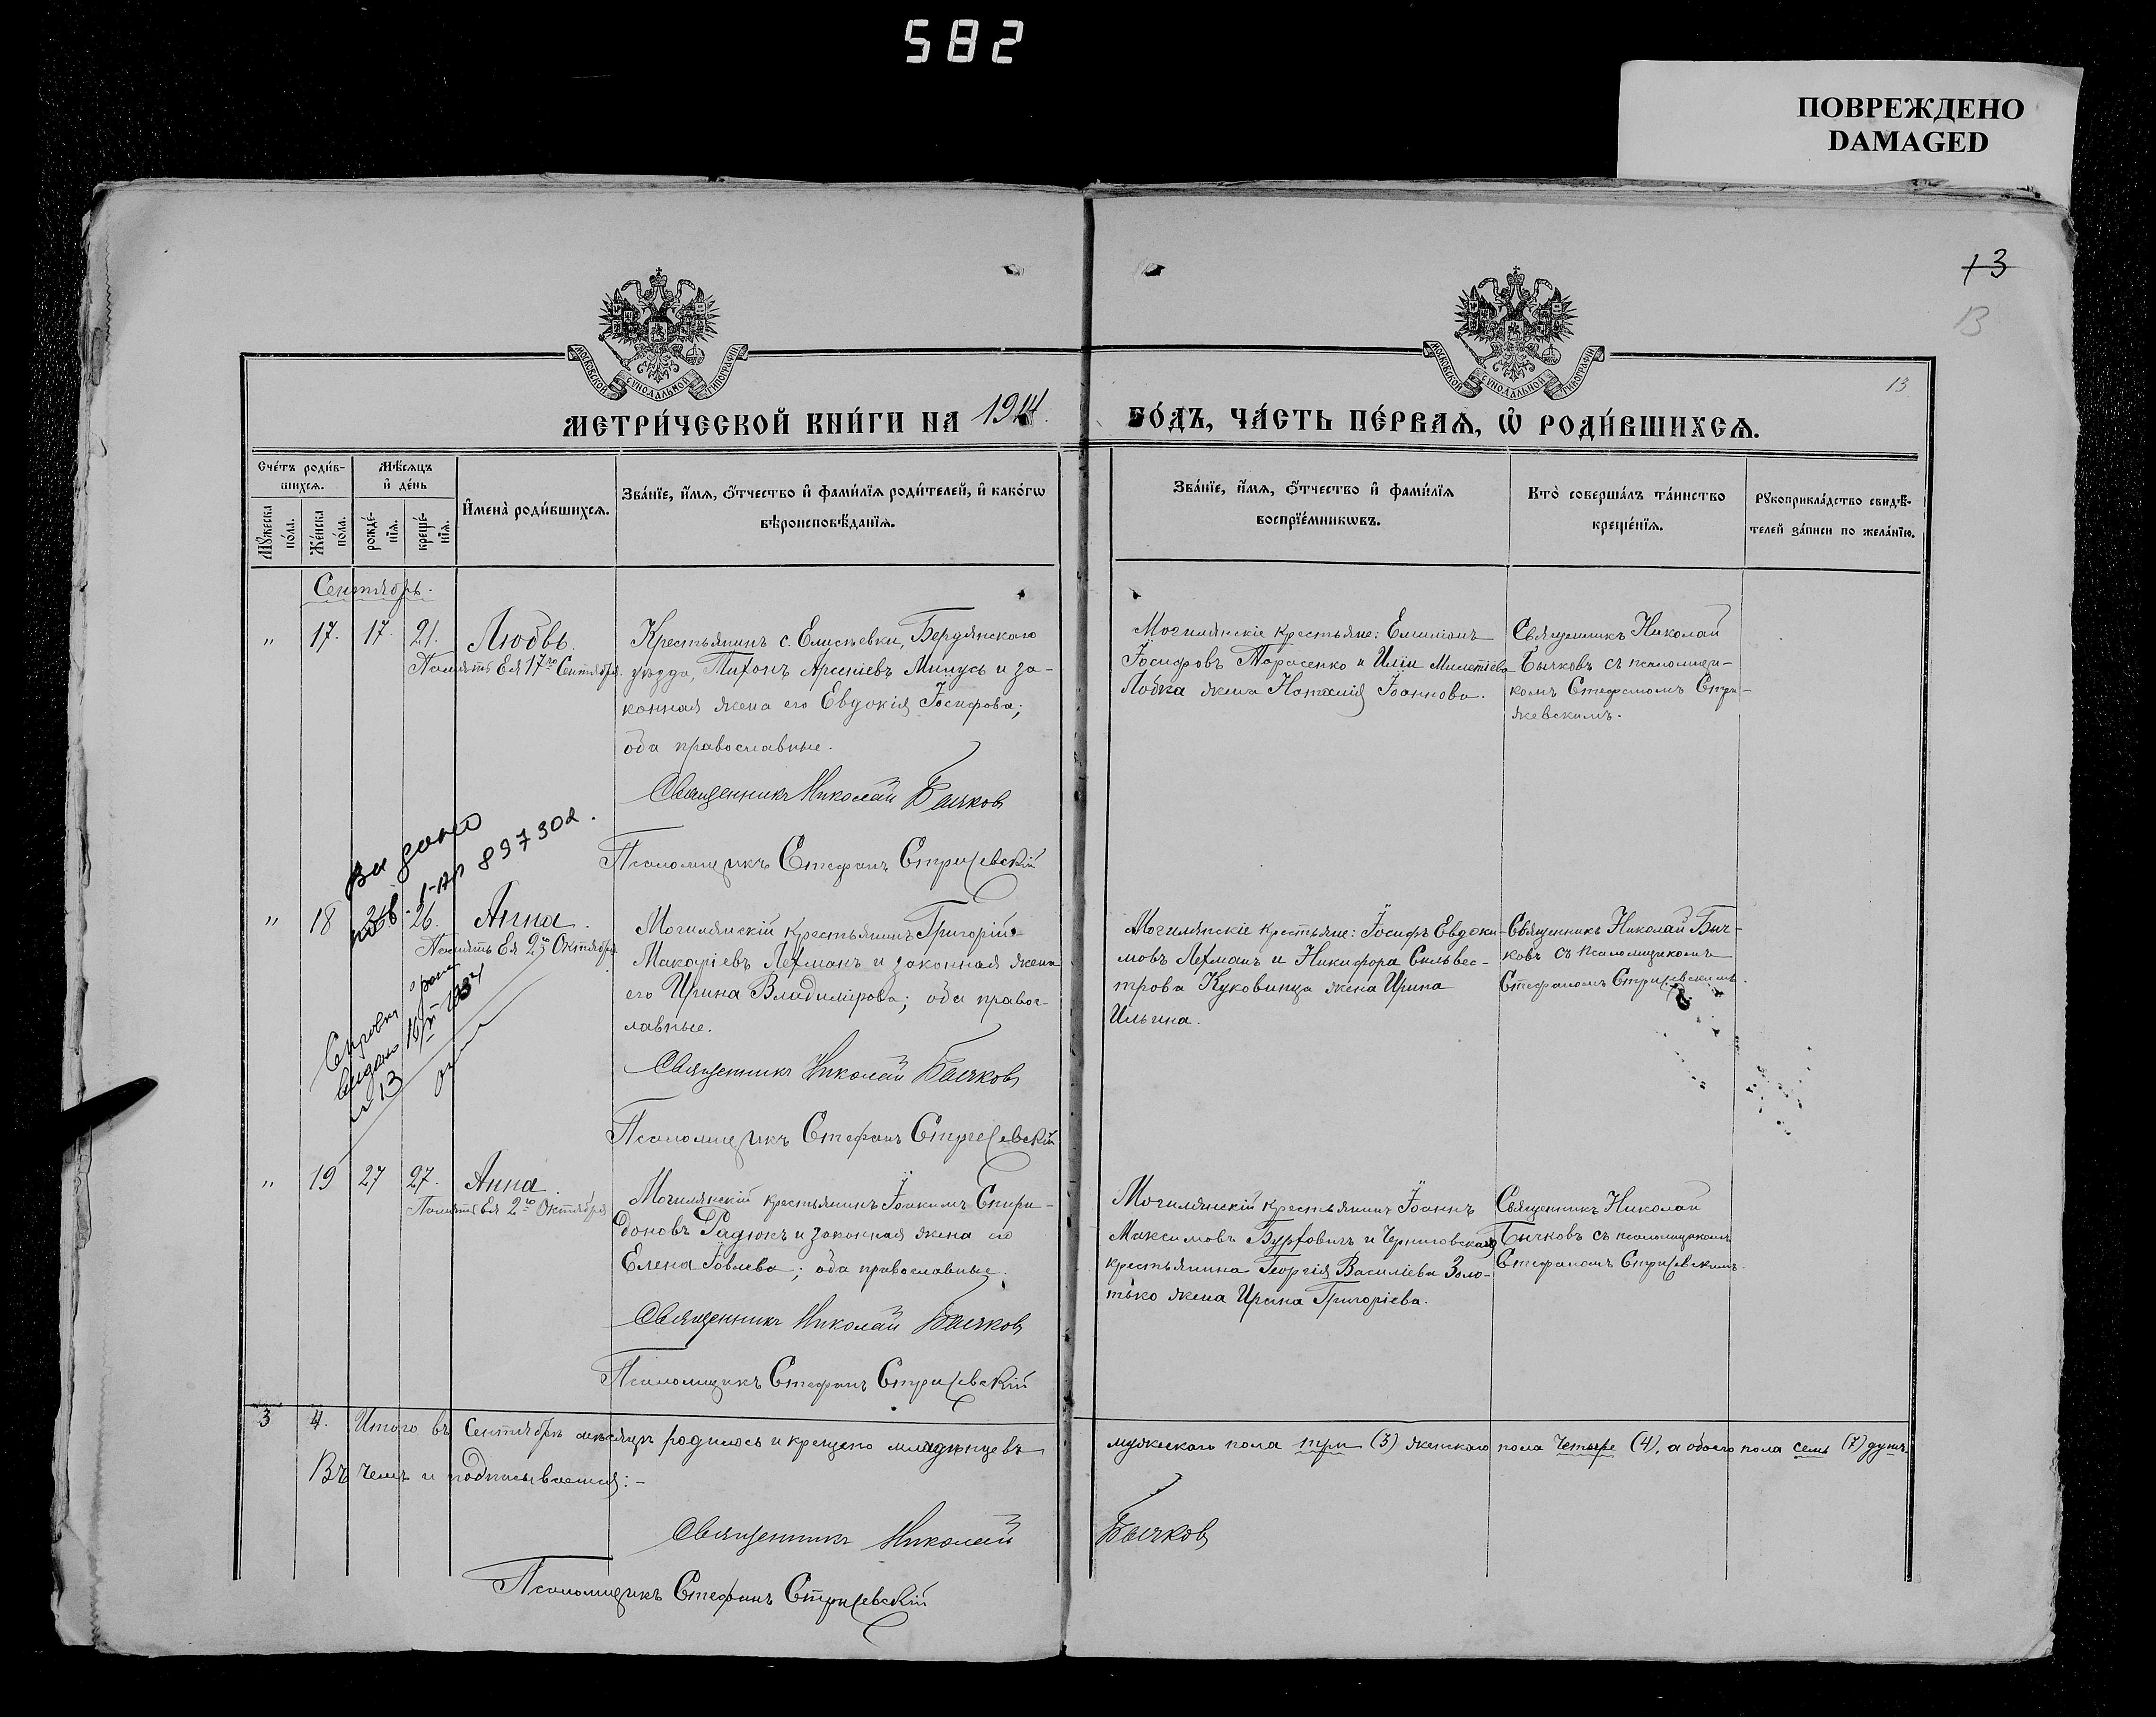 582
ПОВРЕЖДЕНО
DAMAGED
13
13
13
МОСКОВСКОЙ СѴНОДАЛЬНОЙ ТИПОГРАФІИ
МОСКОВСКОЙ СѴНОДАЛЬНОЙ ТИПОГРАФІИ
МЕТРИ́ЧЕСКОЙ КНИ́ГИ НА 1914.
ГО́ДЪ, ЧА́СТЬ ПЕ́РВАѦ, Ѡ҆ РОДИ́ВШИХСѦ.
Сче́тъ роди́в-
шихсѧ.
Мѣ́сѧцъ
и҆ де́нь
И҆мена̀ роди́вшихсѧ.
Зва́нїе, и҆́мѧ, ѻ҆́тчество и҆ фами́лїѧ роди́телей, и҆ како́гѡ
вѣроисповѣ́данїѧ.
Мꙋ́жеска
по́ла.
Же́нска
по́ла.
рожде́-
нїѧ.
креще́-
нїѧ.
Зва́нїе, и҆́мѧ, ѻ҆́тчество и҆ фами́лїѧ
воспрїе́мникѡвъ.
Кто̀ соверша́лъ та́инство
креще́нїѧ.
Рꙋкоприкла́дство свидѣ́-
телей за́писи по жела́нїю.
Сентябрь.
" 17. 17. 21. Любовь.
Память Ея 17го Сентября.
Крестьянинъ с. Елисѣевки, Бердянскаго
уѣзда, Тихонъ Арсеніевъ Милусь и за-
конная жена его Евдокія Іосифова;
оба православные.
Священникъ Николай Бычковъ
Псаломщикъ Стефанъ Стрижевскій
Могилянскіе крестьяне: Емиліанъ
Іосифовъ Тарасенко и Иліи Милетіева
Лобка жена Наталія Іоаннова.
Священникъ Николай
Бычковъ съ псаломщи-
комъ Стефаномъ Стри-
жевскимъ.
Видано
I-АР 897302.
" 18 26. Анна.
Память Ея 2го Октября
Могилянскій крестьянинъ Григорій
Макаріевъ Лехманъ и законная жена
его Ирина Владимірова; оба правос-
лавные.
Священникъ Николай Бычковъ
Псаломщикъ Стефанъ Стрижевскій
Могилянскіе крестьяне: Іосифъ Евдоки-
мовъ Лехманъ и Никифора Сильвес-
трова Куковинца жена Ирина
Ильина.
Священникъ Николай Быч-
ковъ съ псаломщикомъ
Стефаномъ Стрижевскимъ.
видано
13
" 19 27 27. Анна.
Память Ея 2го Октября
Могилянскій крестьянинъ Іоакимъ Спири-
доновъ Радюкъ и законная жена его
Елена Іовлева; оба православные.
Священникъ Николай Бычковъ
Псаломщикъ Стефанъ Стрижевскій
Могилянскій крестьянинъ Іоаннъ
Максимовъ Бурховичъ и Черниговскаго
крестьянина Георгія Василіева Золо-
тько жена Ирина Григоріева.
Священникъ Николай
Бычковъ съ псаломщикомъ
Стефаномъ Стрижевскимъ.
3 4. Итого въ Сентябрѣ мѣсяцѣ родилось и крещено младенцевъ
мужескаго пола три (3) женскаго пола четыре (4), а обоего пола семь (7) душъ.
Въ чемъ и подписываемся:-
Священникъ Николай Бычковъ
Псаломщикъ Стефанъ Стрижевскій